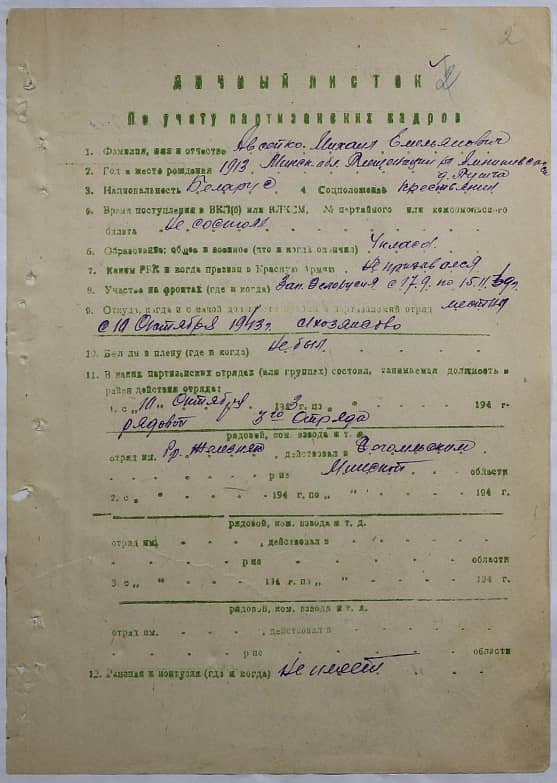 2
ЛИЧНЫЙ ЛИСТОК
По учету партизанских кадров
1. Фамилия, имя и отчество Авсейко Михаил Емельянович
2. Год и место рождения 1913 Минск. обл.
3. Национальность Беларус 4 Соцположение крестьянин
5. Время поступления в ВКП(б) или ВЛКСМ, № партийного или комсомольского
билета не состоял
6. Образование: общее и военное (что и когда окончил) 4 класса
7. Каким РВК и когда призван в Красную Армию не призывался
8. Участие на фронтах (где и когда) Зап. Белорусия с 17.9. по 15.11.39г.
9. Откуда, когда и с какой партизанский отряд местный
с 10 Октября 1943г. с/хозяйство
10. Был ли в плену (где и когда) не был
11. В каких партизанских отрядах (или группах) состоял, занимаемая должность и
район действия отряда:
1. с "10" Октября 1943 г. по " " 194 г.
рядовой 3го Отряда
рядовой, ком. взвода и т. д.
отряд им. , действовал в
р-не Минской области
2. с " " 194 г. по " " 194 г.
рядовой, ком. взвода и т. д.
отряд им. , действовал в
р-не области
3. с " " 194 г. по " " 194 г.
рядовой, ком. взвода и т. д.
отряд им. , действовал в
р-не области
12. Ранения и контузия (где и когда) не имеет